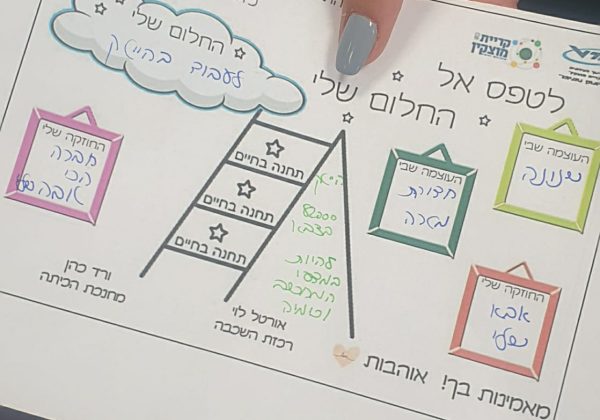 קריית מוצקין
לטפס אל
החלום שלי
החלום שלי
לעבוד בהייטק
העוצמה שבי
שנונה
העוצמה שבי
חדורת
מטרה
החוזקה שלי
חברה
הכי
טובה שלי
החוזקה שלי
אבא
שלי
תחנה בחיים
תחנה בחיים
תחנה בחיים
הייטק
8200
בצבא
להיות
במדעי
המחשב
וכימיה
ורד כהן
מחנכת הכיתה
אורטל לוי
רכזת השכבה
מאמינות בך! אוהבות